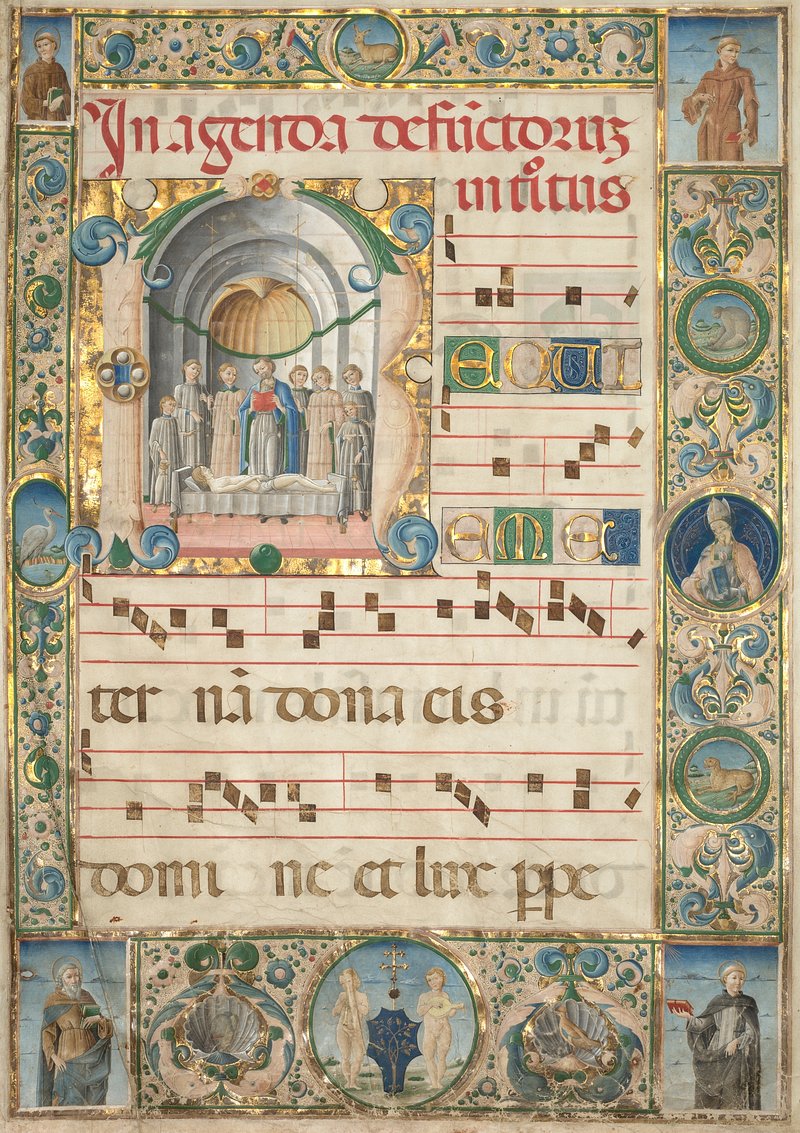 In agenda defūctoruʒ
intͦitus
REQUI
EM E
ter nā dona eis
domi ne et lux ppe